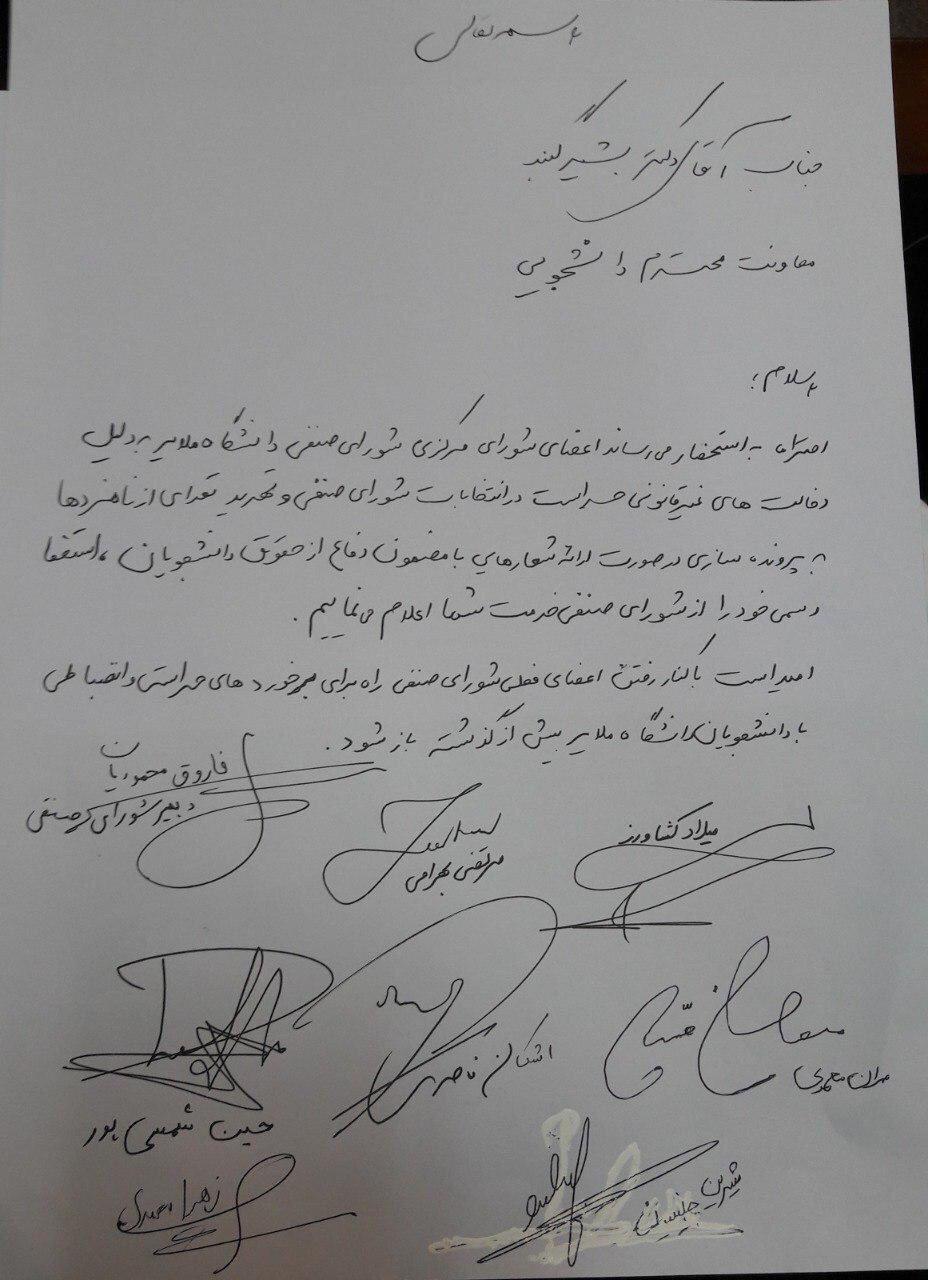 بسمه تعالی
جناب آقای دکتر بشیر گنبد
معاونت محترم دانشجویی
با سلام؛
احتراما به استحضار می‌رساند اعضای شورای مرکزی شورای صنفی دانشگاه ملایر به دلیل
دخالت های غیرقانونی حراست در انتخابات شورای صنفی و تهدید تعدادی از نامزدها
به پرونده سازی در صورت ارائه شعارهایی با مضمون دفاع از حقوق دانشجویان، استعفا
رسمی خود را از شورای صنفی خدمت شما اعلام می نماییم.
امید است با کنار رفتن اعضای فعلی شورای صنفی راه برای برخورد های حراستی و انضباطی
با دانشجویان دانشگاه ملایر بیش از گذشته باز شود.
فاروق محمودیان
دبیر شورای صنفی
میلاد کشاورز
مرتضی بهرامی
اشکان ناصری
حسین شمسی پور
شیرین
زهرا احمدی